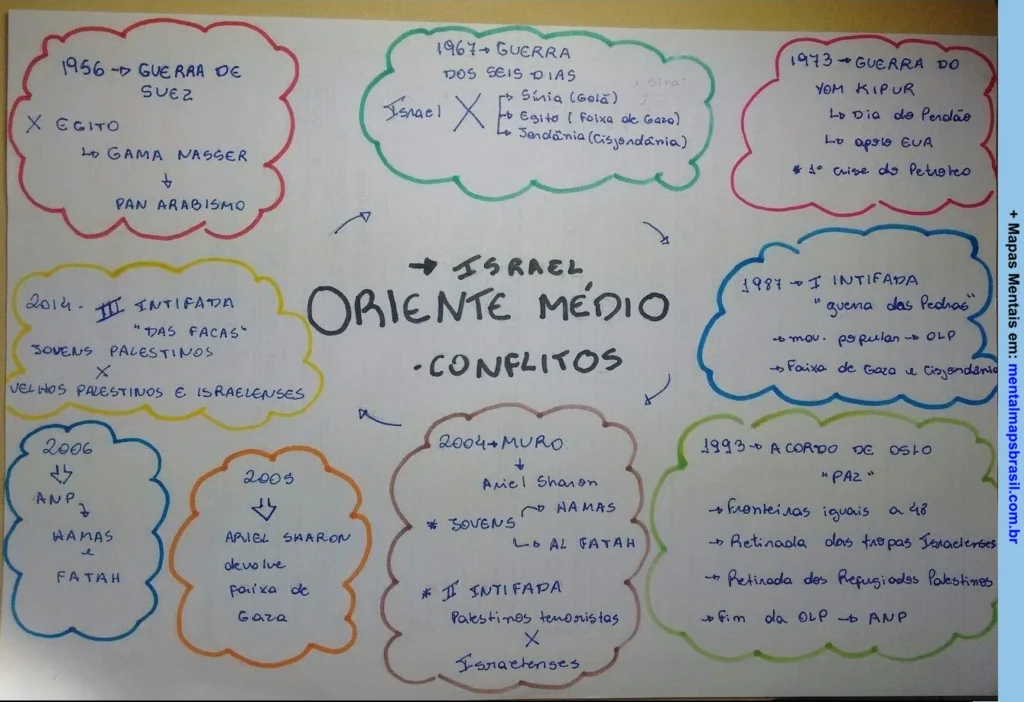 → ISRAEL
ORIENTE MÉDIO
• CONFLITOS
1956 → GUERRA DE
SUEZ
X EGITO
↳ GAMA NASSER
↓
PAN ARABISMO
1967 → GUERRA
DOS SEIS DIAS
Israel X → Síria (Golã)
→ Egito (Faixa de Gaza)
→ Jordânia (Cisjordânia)
1973 → GUERRA DO
YOM KIPUR
↳ Dia do Perdão
↳ apoio EUA
* 1ª crise do Petróleo
1987 → I INTIFADA
"guerra das Pedras"
→ mov. popular → OLP
→ Faixa de Gaza e Cisjordânia
1993 → ACORDO DE OSLO
"PAZ"
→ Fronteiras iguais a 48
→ Retirada das tropas Israelenses
→ Retirada dos Refugiados Palestinos
→ Fim da OLP → ANP
2004 → MURO
↓
Ariel Sharon
* JOVENS → HAMAS
↳ AL FATAH
* II INTIFADA
Palestinos terroristas
X
Israelenses
2005
⇩
ARIEL SHARON
devolve
faixa de
Gaza
2006
⇩
ANP
HAMAS
e
FATAH
2014 - III INTIFADA
"DAS FACAS"
JOVENS PALESTINOS
X
VELHOS PALESTINOS E ISRAELENSES
+ Mapas Mentais em: mentalmapsbrasil.com.br